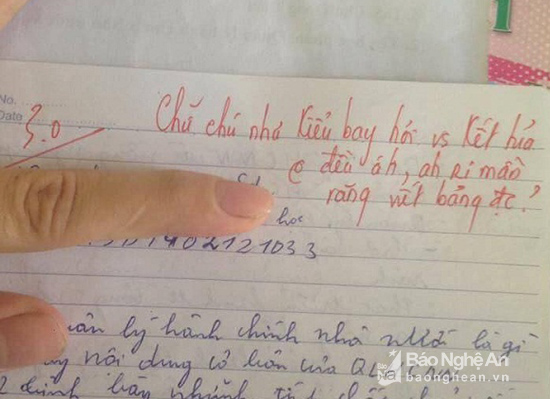 No.
Date
3.0
Chữ chú như kiểu bay hới vs kết hứa
@ đều áh, ah ri mần
răng viết bảng đc?
học
1402121033
uản lý hành chính nhà nước là gì
nội dung cơ bản của QL
Báo Nghệ An
baonghean.vn